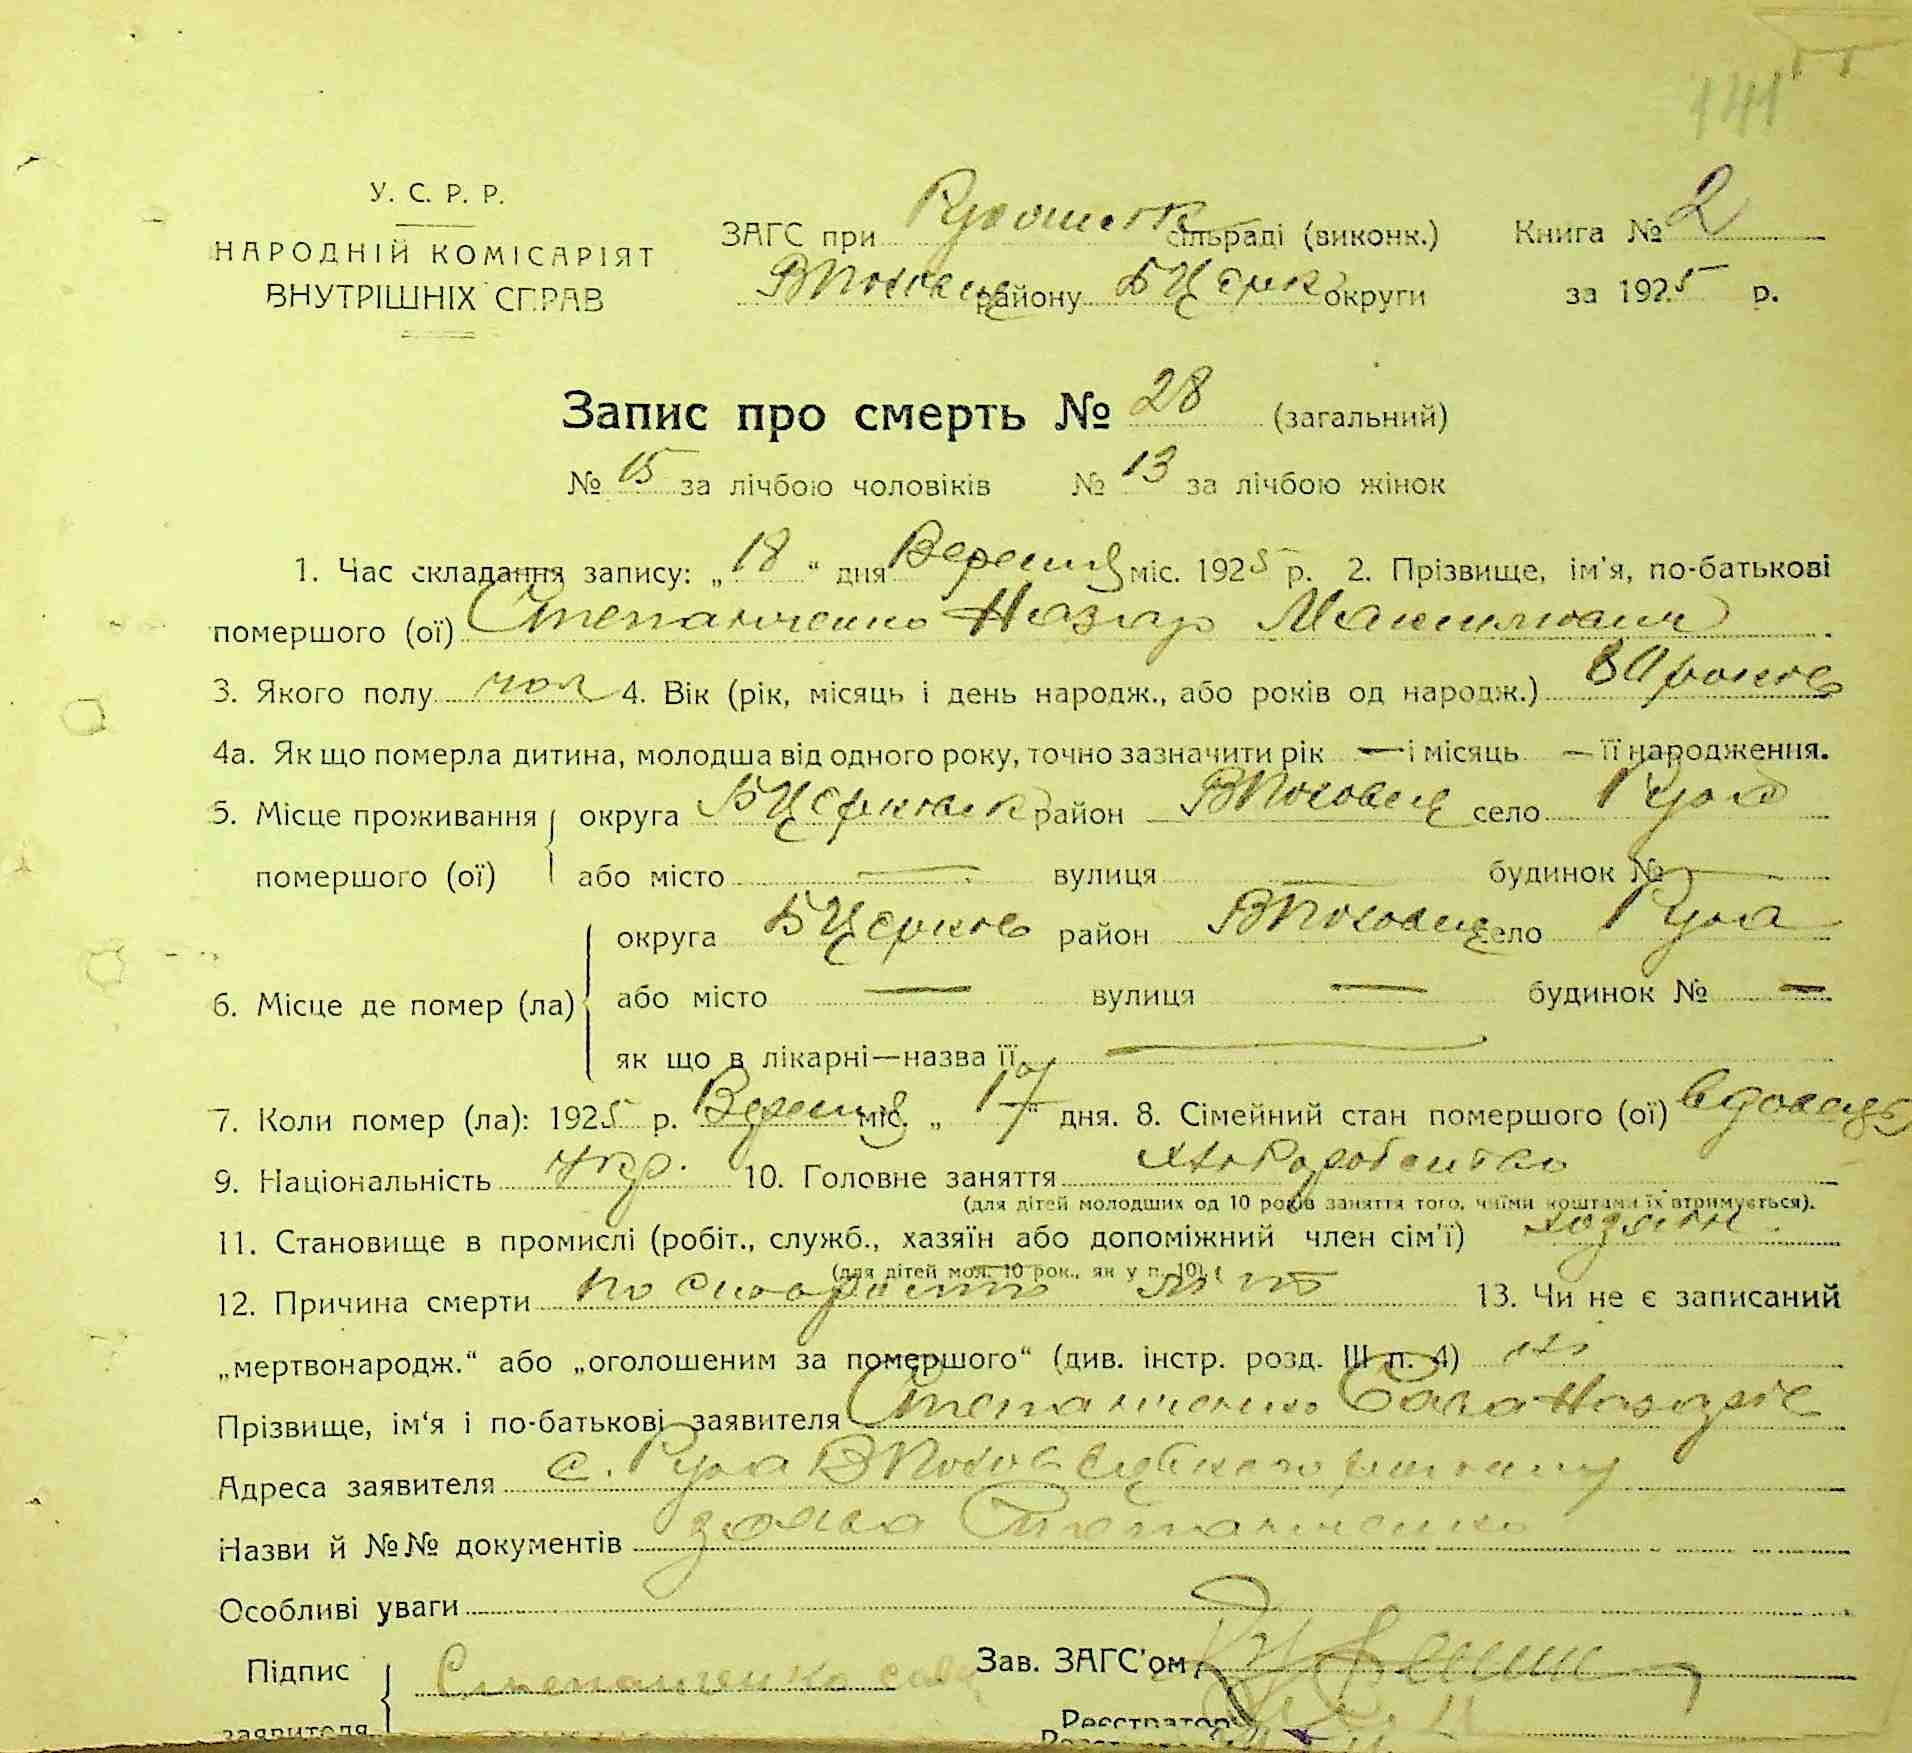 141
У. С. Р. Р.
НАРОДНІЙ КОМІСАРІЯТ
ВНУТРІШНІХ СПРАВ
ЗАГС при сільраді (виконк.) Книга № 2
району БЦерк округи за 1925 р.
Запис про смерть № 28 (загальний)
№ 15 за лічбою чоловіків № 13 за лічбою жінок
1. Час складання запису: „18“ дня міс. 1925 р. 2. Прізвище, ім'я, по-батькові
помершого (ої) Степанченко Назар
3. Якого полу чол 4. Вік (рік, місяць і день народж., або років од народж.)
4а. Як що померла дитина, молодша від одного року, точно зазначити рік — і місяць — її народження.
5. Місце проживання округа район село Руда
помершого (ої) або місто — вулиця — будинок № —
округа район село Руда
6. Місце де помер (ла) або місто — вулиця — будинок № —
як що в лікарні—назва її —
7. Коли помер (ла): 1925 р. міс. „17“ дня. 8. Сімейний стан помершого (ої) вдовець
9. Національність укр. 10. Головне заняття
(для дітей молодших од 10 років заняття того, чиїми коштами їх втримується).
11. Становище в промислі (робіт., служб., хазяїн або допоміжний член сім'ї)
(для дітей мол. 10 рок., як у п. 10).
12. Причина смерти по старости літ 13. Чи не є записаний
„мертвонародж.“ або „оголошеним за помершого“ (див. інстр. розд. III п. 4) ні
Прізвище, ім'я і по-батькові заявителя Степанченко Сава
Адреса заявителя с. Руда
Назви й №№ документів заява Степанченко
Особливі уваги
Підпис Степанченко Сава Зав. ЗАГС'ом
заявителя Реєстратор